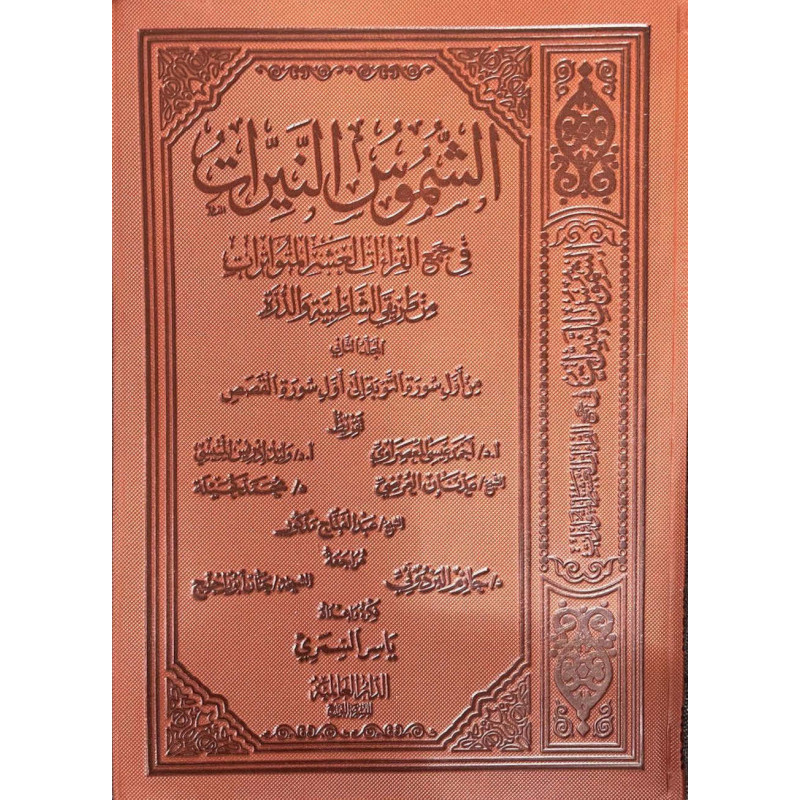 الشُّمُوسُ النَّيِّرَاتُ
فِي جَمْعِ القِرَاءَاتِ العَشْرِ المُتَوَاتِرَاتِ
مِنْ طَرِيقَيِ الشَّاطِبِيَّةِ وَالدُّرَّةِ
المُجَلَّدُ الثَّانِي
مِنْ أَوَّلِ سُورَةِ التَّوْبَةِ إِلَى أَوَّلِ سُورَةِ القَصَصِ
تقريظ
أ.د/ أحمد عيسى المعصراوي أ.د/ وليد إدريس المنيسي
الشيخ/ عدنان العرضي د/ محمد نجيلة
الشيخ/ عبد الفتاح مدكور
مراجعة
د/ حازم البرديوني الشيخة/ حنان أبو زاحوج
فكرة وإعداد
ياسر الشمري
الدار العالمية
للنشر والتوزيع
الشُّمُوسُ النَّيِّرَاتُ فِي جَمْعِ القِرَاءَاتِ العَشْرِ المُتَوَاتِرَاتِ